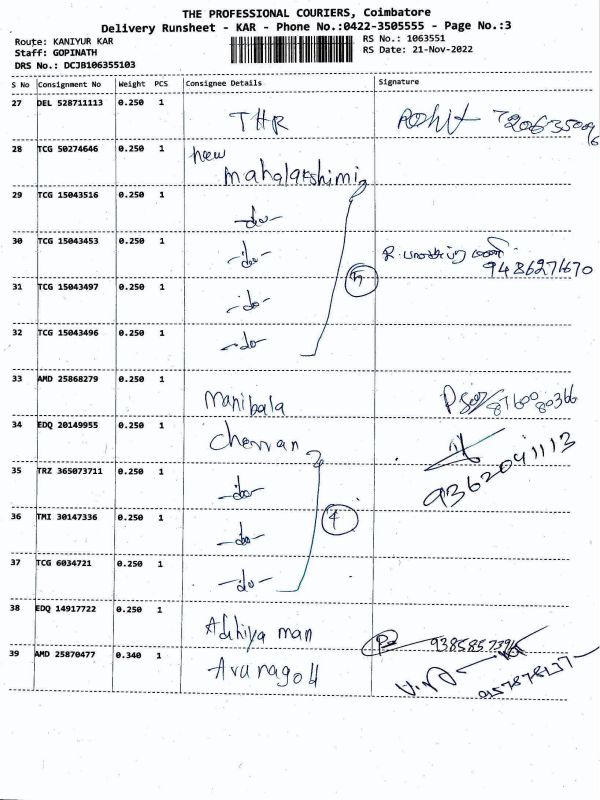 THE PROFESSIONAL COURIERS, Coimbatore
Delivery Runsheet - KAR - Phone No.:0422-3505555 - Page No.:3
Route: KANIYUR KAR
RS No.: 1063551
Staff: GOPINATH
RS Date: 21-Nov-2022
DRS No.: DCJB106355103
S No Consignment No Weight PCS Consignee Details Signature
27 DEL 528711113 0.250 1 THR
28 TCG 50274646 0.250 1 new mahalakshimi
29 TCG 15043516 0.250 1 -do-
30 TCG 15043453 0.250 1 -do- 9486271670
31 TCG 15043497 0.250 1 -do- 5
32 TCG 15043496 0.250 1 -do-
33 AMD 25868279 0.250 1 manibala
34 EDQ 20149955 0.250 1 cherran 9362041113
35 TRZ 365073711 0.250 1 -do-
36 TMI 30147336 0.250 1 -do- 4
37 TCG 6034721 0.250 1 -do-
38 EDQ 14917722 0.250 1 Adhiya man
39 AMD 25870477 0.340 1